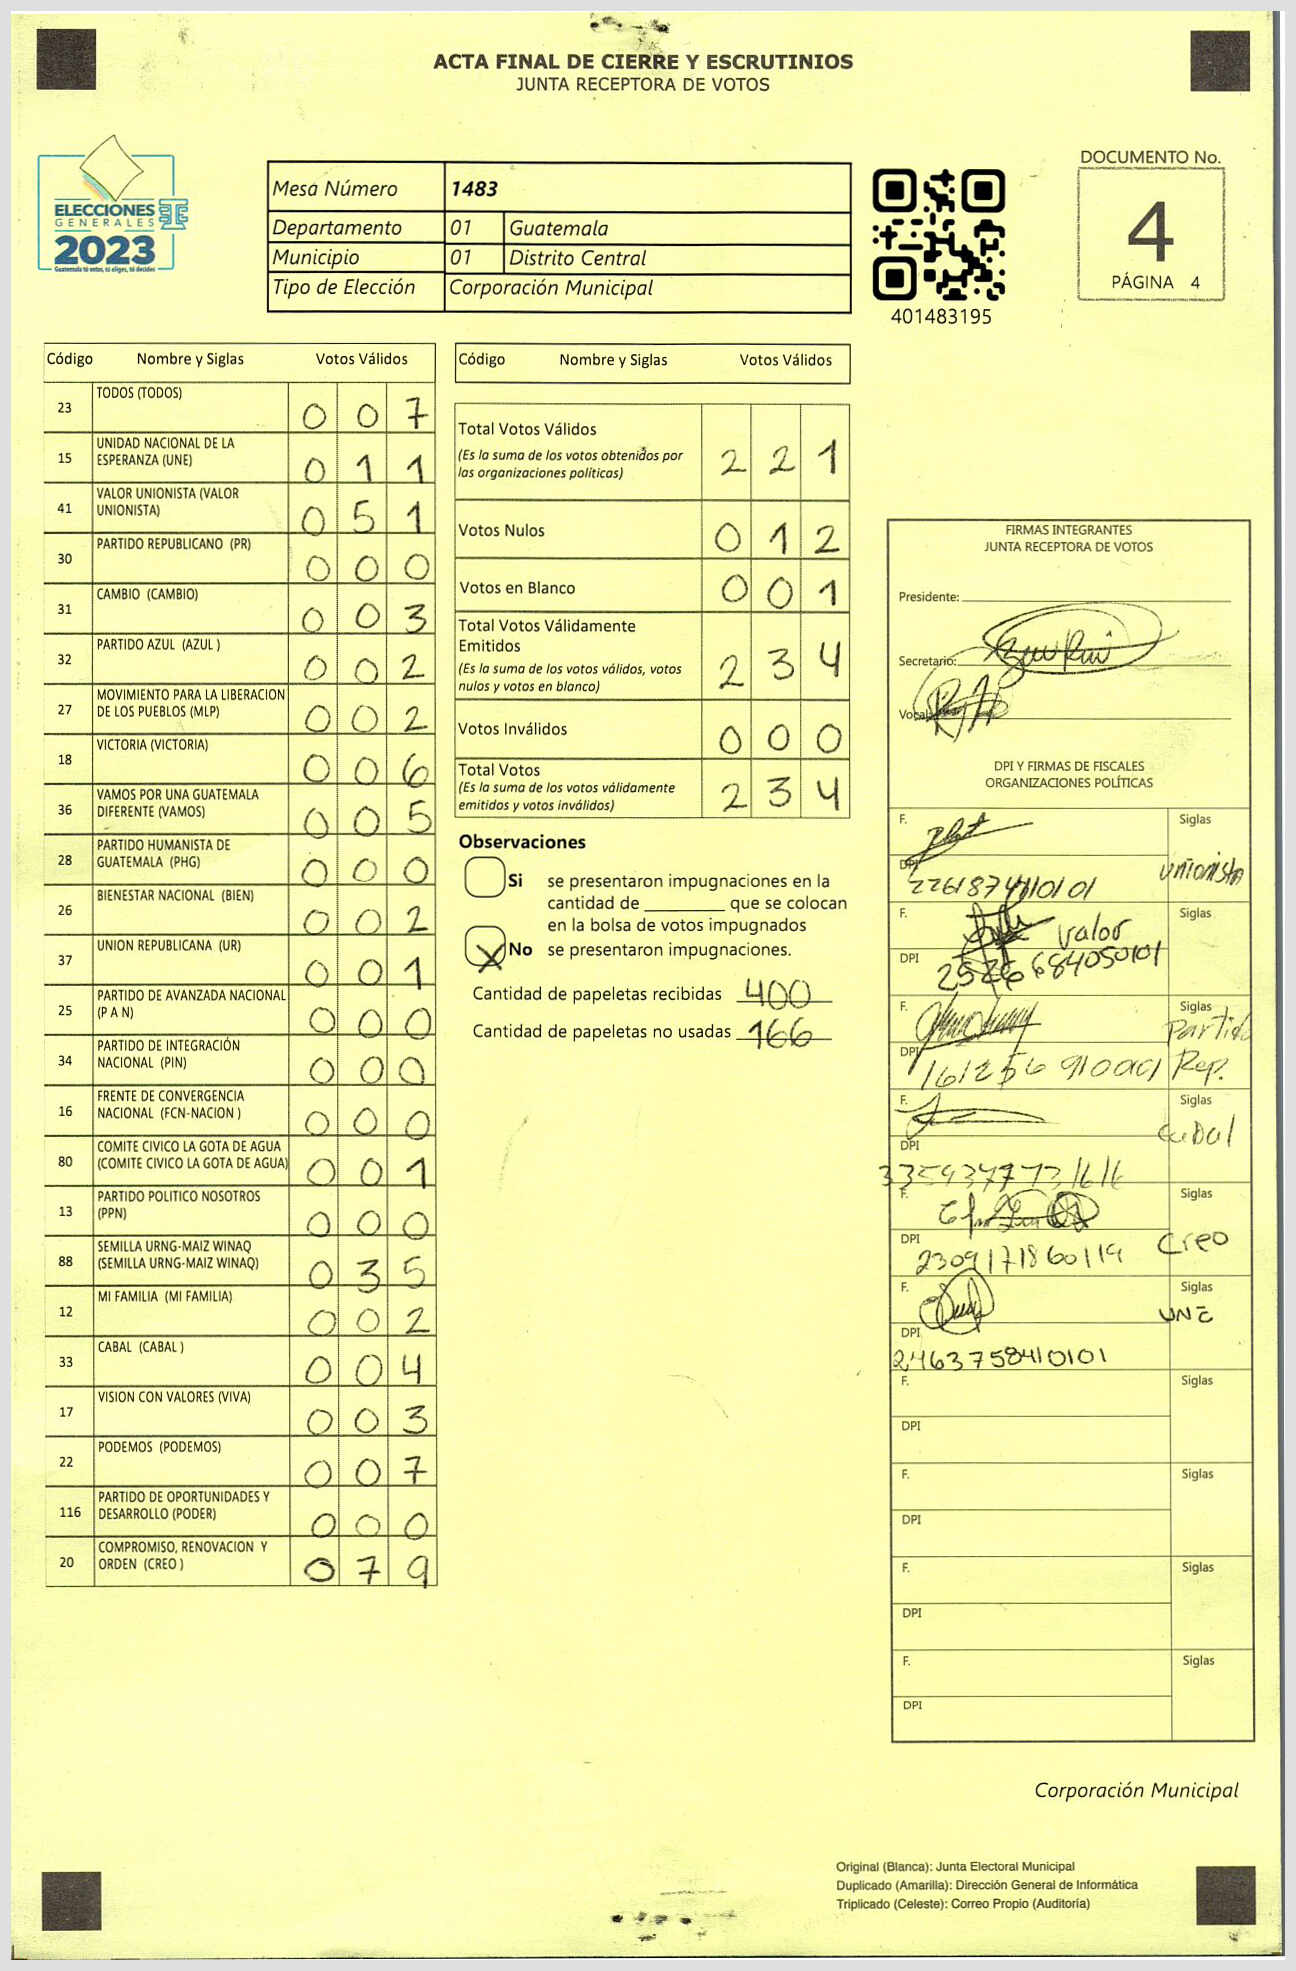 ACTA FINAL DE CIERRE Y ESCRUTINIOS
JUNTA RECEPTORA DE VOTOS
ELECCIONES
GENERALES
2023
Guatemala tú votas, tú eliges, tú decides
Mesa Número 1483
Departamento 01 Guatemala
Municipio 01 Distrito Central
Tipo de Elección Corporación Municipal
401483195
DOCUMENTO No.
4
PÁGINA 4
Código Nombre y Siglas Votos Válidos
23 TODOS (TODOS) 0 0 7
15 UNIDAD NACIONAL DE LA
ESPERANZA (UNE) 0 1 1
41 VALOR UNIONISTA (VALOR
UNIONISTA) 0 5 1
30 PARTIDO REPUBLICANO (PR) 0 0 0
31 CAMBIO (CAMBIO) 0 0 3
32 PARTIDO AZUL (AZUL ) 0 0 2
27 MOVIMIENTO PARA LA LIBERACION
DE LOS PUEBLOS (MLP) 0 0 2
18 VICTORIA (VICTORIA) 0 0 6
36 VAMOS POR UNA GUATEMALA
DIFERENTE (VAMOS) 0 0 5
28 PARTIDO HUMANISTA DE
GUATEMALA (PHG) 0 0 0
26 BIENESTAR NACIONAL (BIEN) 0 0 2
37 UNION REPUBLICANA (UR) 0 0 1
25 PARTIDO DE AVANZADA NACIONAL
(P A N) 0 0 0
34 PARTIDO DE INTEGRACIÓN
NACIONAL (PIN) 0 0 0
16 FRENTE DE CONVERGENCIA
NACIONAL (FCN-NACION ) 0 0 0
80 COMITE CIVICO LA GOTA DE AGUA
(COMITE CIVICO LA GOTA DE AGUA) 0 0 1
13 PARTIDO POLITICO NOSOTROS
(PPN) 0 0 0
88 SEMILLA URNG-MAIZ WINAQ
(SEMILLA URNG-MAIZ WINAQ) 0 3 5
12 MI FAMILIA (MI FAMILIA) 0 0 2
33 CABAL (CABAL ) 0 0 4
17 VISION CON VALORES (VIVA) 0 0 3
22 PODEMOS (PODEMOS) 0 0 7
116 PARTIDO DE OPORTUNIDADES Y
DESARROLLO (PODER) 0 0 0
20 COMPROMISO, RENOVACION Y
ORDEN (CREO ) 0 7 9
Código Nombre y Siglas Votos Válidos
Total Votos Válidos
(Es la suma de los votos obtenidos por
las organizaciones políticas) 2 2 1
Votos Nulos 0 1 2
Votos en Blanco 0 0 1
Total Votos Válidamente
Emitidos
(Es la suma de los votos válidos, votos
nulos y votos en blanco) 2 3 4
Votos Inválidos 0 0 0
Total Votos
(Es la suma de los votos válidamente
emitidos y votos inválidos) 2 3 4
Observaciones
Si se presentaron impugnaciones en la
cantidad de ________ que se colocan
en la bolsa de votos impugnados
X No se presentaron impugnaciones.
Cantidad de papeletas recibidas 400
Cantidad de papeletas no usadas 166
FIRMAS INTEGRANTES
JUNTA RECEPTORA DE VOTOS
Presidente:
Secretario:
Vocal:
DPI Y FIRMAS DE FISCALES
ORGANIZACIONES POLÍTICAS
F. Siglas
DPI unionista
F. Siglas
valor
DPI 2526684050101
F. Siglas
Partido
DPI Rep.
F. Siglas
DPI
F. Siglas
DPI Creo
2309171860119
F. Siglas
UNE
DPI
2463758410101
F. Siglas
DPI
F. Siglas
DPI
F. Siglas
DPI
F. Siglas
DPI
Corporación Municipal
Original (Blanca): Junta Electoral Municipal
Duplicado (Amarilla): Dirección General de Informática
Triplicado (Celeste): Correo Propio (Auditoría)